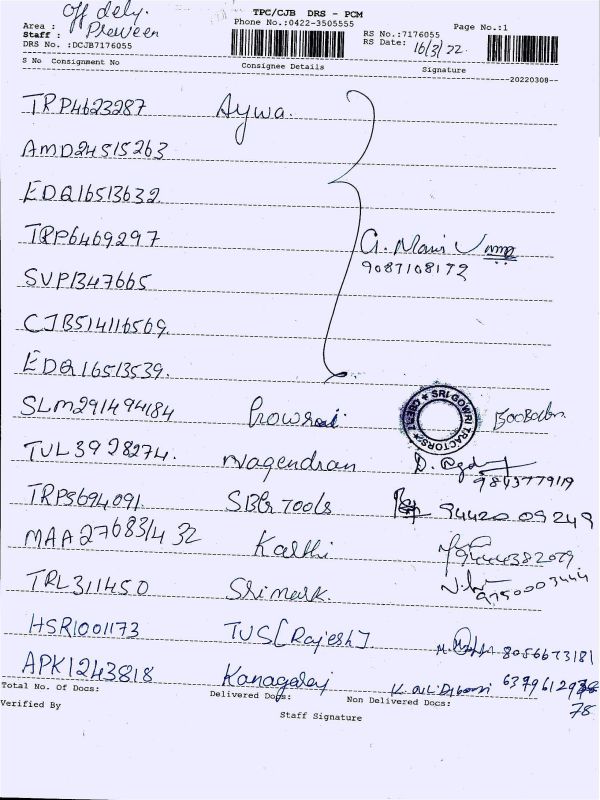 off dely.
TPC/CJB DRS - PCM
Phone No.:0422-3505555
Area :
Staff : Praveen
DRS No. :DCJB7176055
RS No.:7176055
RS Date: 16/3/22
Page No.:1
S No Consignment No Consignee Details Signature
20220308
TRP4623287 Aywa.
AMD24515263
EDQ16513632
TRP6469297 G. Mani
9087108172
SVP1347665
CJB514116569.
EDQ16513539.
SLM291494184
SRI GOWRI TRACTORS
TUL3928274. Nagendran
9843779119
TRP3694091. SBG TOOLS 94420 09249
MAA276831432 Karthi
TRL311450 Srimark. 9750003444
HSR1001173 TUS [Rajesh] 8056673181
APK1243818 Kanagaraj
78
Total No. Of Docs: Delivered Docs: Non Delivered Docs:
Verified By Staff Signature